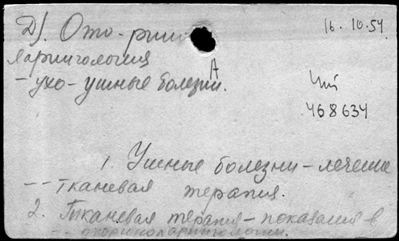 Д). Ото-рино
16.10.54
ларингология
-ухо-ушные болезни.
А
Чит
468634
1. Ушные болезни-лечение
-- тканевая терапия.
2. Тканевая терапия-показания в
-- оториноларингологии.